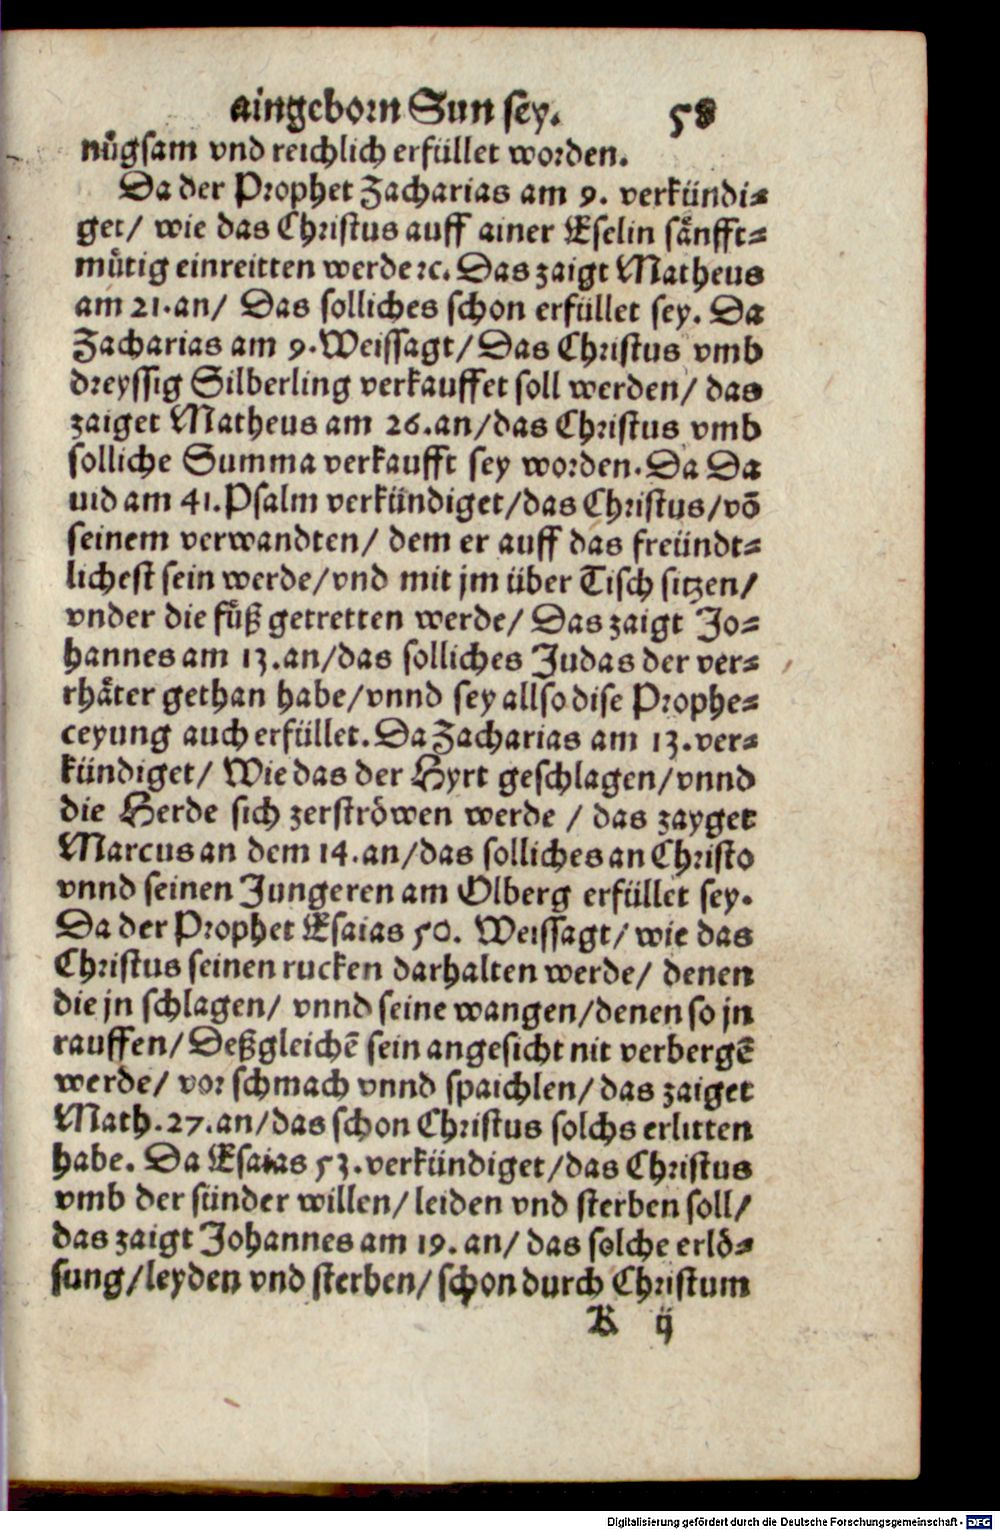 aingeborn Sun sey. 58
nuͤgsam vnd reichlich erfüllet worden.
Da der Prophet Zacharias am 9. verkündi⸗
get/ wie das Christus auff ainer Eselin saͤnfft⸗
muͤtig einreitten werde ꝛc. Das zaigt Matheus
am 21. an/ Das solliches schon erfüllet sey. Da
Zacharias am 9. Weissagt/ Das Christus vmb
dreyssig Silberling verkauffet soll werden/ das
zaiget Matheus am 26. an/ das Christus vmb
solliche Summa verkaufft sey worden. Da Da
uid am 41. Psalm verkündiget/ das Christus/ võ
seinem verwandten/ dem er auff das freündt⸗
lichest sein werde/ vnd mit jm über Tisch sitzen/
vnder die fuͤß getretten werde/ Das zaigt Jo⸗
hannes am 13. an/ das solliches Judas der ver⸗
rhaͤter gethan habe/ vnnd sey allso dise Prophe⸗
ceyung auch erfüllet. Da Zacharias am 13. ver⸗
kündiget/ Wie das der Hyrt geschlagen/ vnnd
die Herde sich zerströwen werde / das zayget
Marcus an dem 14. an/ das solliches an Christo
vnnd seinen Jungeren am Olberg erfüllet sey.
Da der Prophet Esaias 50. Weissagt/ wie das
Christus seinen rucken darhalten werde/ denen
die jn schlagen/ vnnd seine wangen/ denen so jn
rauffen/ Deßgleichẽ sein angesicht nit verbergẽ
werde/ vor schmach vnnd spaichlen/ das zaiget
Math. 27. an/ das schon Christus solchs erlitten
habe. Da Esaias 53. verkündiget/ das Christus
vmb der sünder willen/ leiden vnd sterben soll/
das zaigt Johannes am 19. an/ das solche erlö⸗
sung/ leyden vnd sterben/ schon durch Christum
K ij
Digitalisierung gefördert durch die Deutsche Forschungsgemeinschaft - DFG